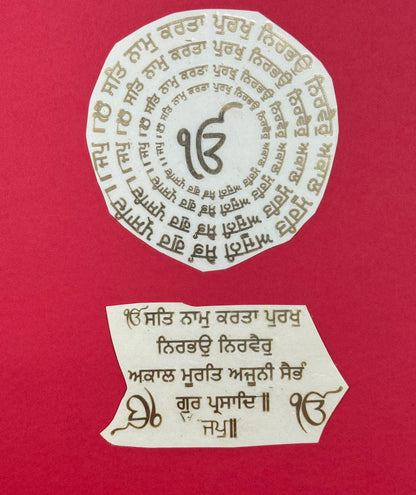 ੴ ਸਤਿ ਨਾਮੁ ਕਰਤਾ ਪੁਰਖੁ ਨਿਰਭਉ ਨਿਰਵੈਰੁ ਅਕਾਲ ਮੂਰਤਿ ਅਜੂਨੀ ਸੈਭੰ ਗੁਰ ਪ੍ਰਸਾਦਿ ॥ ਜਪੁ ॥
ੴ ਸਤਿ ਨਾਮੁ ਕਰਤਾ ਪੁਰਖੁ ਨਿਰਭਉ ਨਿਰਵੈਰੁ ਅਕਾਲ ਮੂਰਤਿ ਅਜੂਨੀ ਸੈਭੰ ਗੁਰ ਪ੍ਰਸਾਦਿ ॥ ਜਪੁ ॥
ੴ ਸਤਿ ਨਾਮੁ ਕਰਤਾ ਪੁਰਖੁ ਨਿਰਭਉ ਨਿਰਵੈਰੁ ਅਕਾਲ ਮੂਰਤਿ ਅਜੂਨੀ ਸੈਭੰ ਗੁਰ ਪ੍ਰਸਾਦਿ ॥ ਜਪੁ ॥
ੴ
ੴ ਸਤਿ ਨਾਮੁ ਕਰਤਾ ਪੁਰਖੁ
ਨਿਰਭਉ ਨਿਰਵੈਰੁ
ਅਕਾਲ ਮੂਰਤਿ ਅਜੂਨੀ ਸੈਭੰ
ੴ ਗੁਰ ਪ੍ਰਸਾਦਿ ॥ ੴ
ਜਪੁ ॥